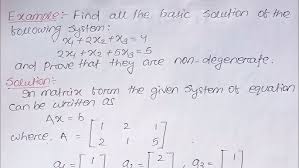 Example:- Find all the basic solution of the
following system:
x₁+2x₂+x₃=4
2x₁+x₂+5x₃=5
and prove that they are non-degenerate.
Solution:-
In matrix form the given system of equation
can be written as
Ax = b
where, A = [1 2 1
2 1 5]
a₁ = [1], a₂ = [2], a₃ = [1]